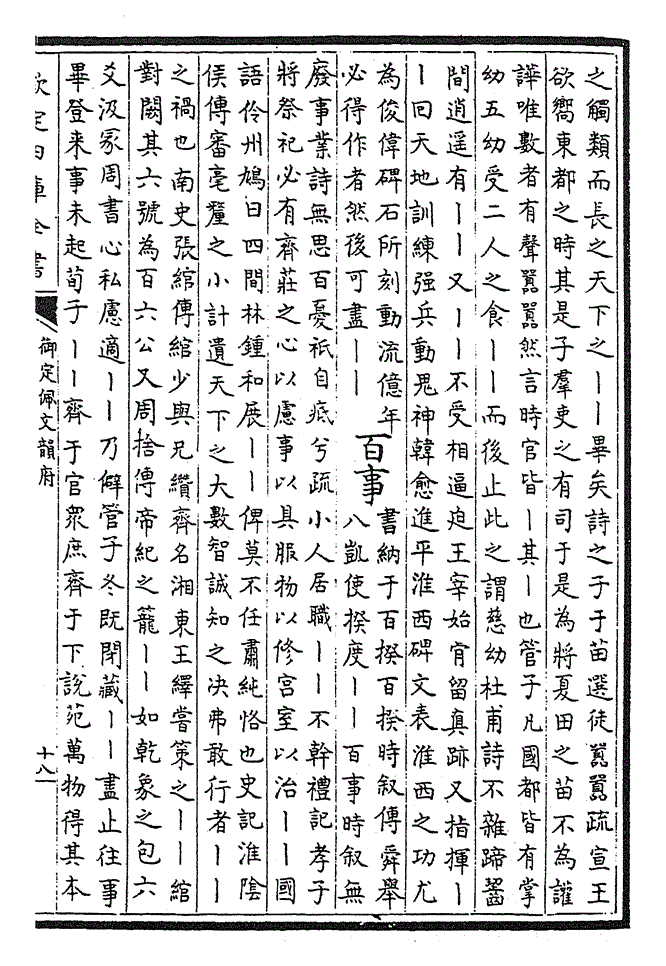 之觸類而長之天下之丨丨畢矣詩之子于苗選徒囂囂疏宣王
欲嚮東都之時其是子羣吏之有司于是為將夏田之苗不為讙
譁唯數者有聲囂囂然言時官皆丨其丨也管子凡國都皆有掌
幼五幼受二人之食丨丨而後止此之謂慈幼杜甫詩不雜蹄齧
間逍遥有丨丨又丨丨不受相逼迫王宰始肯留真跡又指揮丨
丨回天地訓練强兵動鬼神韓愈進平淮西碑文表淮西之功尤
為俊偉碑石所刻動流億年
必得作者然後可盡丨丨
百事
書納于百揆百揆時叙傳舜舉
八凱使揆度丨丨百事時叙無
廢事業詩無思百憂祇自疧兮疏小人居職丨丨不幹禮記孝子
將祭祀必有齊莊之心以慮事以具服物以修宫室以治丨丨國
語伶州鳩曰四間林鍾和展丨丨俾莫不任肅純恪也史記淮隂
侯傳審毫釐之小計遺天下之大數智誠知之决弗敢行者丨丨
之禍也南史張綰傳綰少與兄纘齊名湘東王繹嘗策之丨丨綰
對闕其六號為百六公又周捨傳帝紀之籠丨丨如乾象之包六
爻汲冢周書心私慮適丨丨乃僻管子冬既閉藏丨丨盡止往事
畢登来事未起荀子丨丨齊于官衆庶齊于下說苑萬物得其本
欽定四庫全書
御定佩文韻府
十八